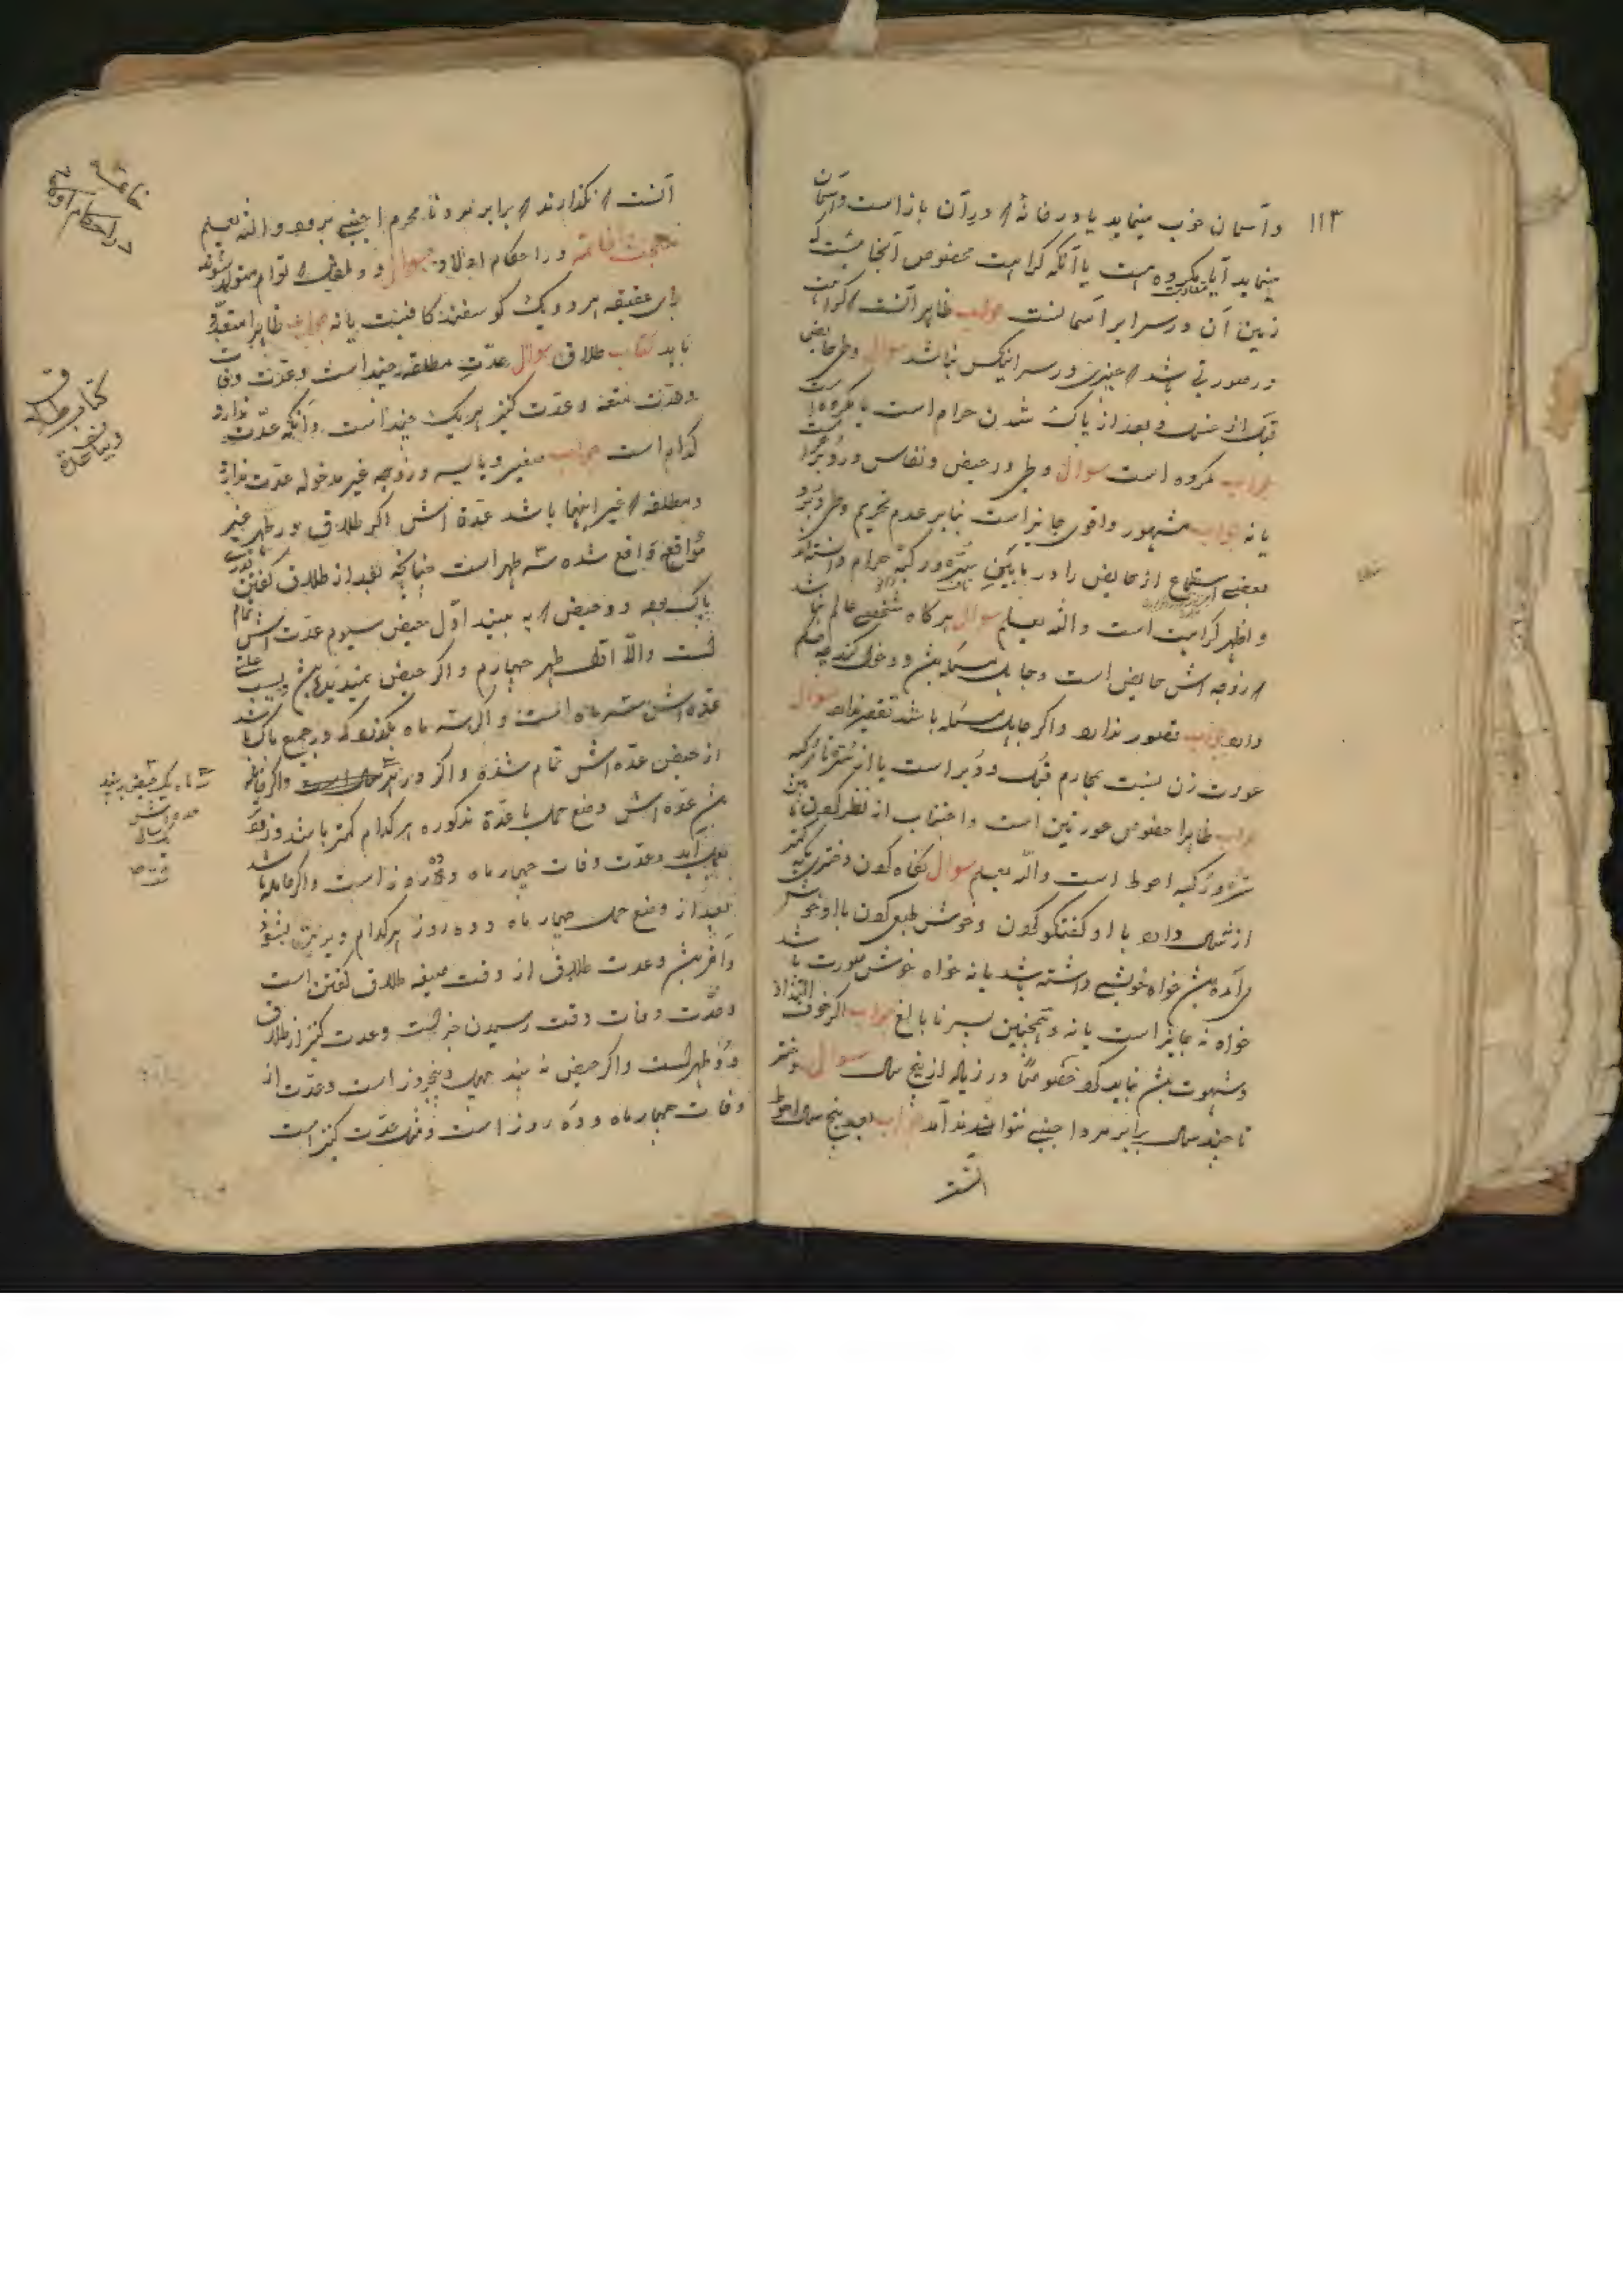 ۱۱۳
و آسمان خوب مینماید یا در خانهٔ که در آن باز است و آسمان
مینماید آیا مکروه است یا آنکه کراهت مخصوص آنجا هست که
زمین آن در سرابر آسمانست جواب ظاهر آنست که کراهت
در صورتی باشد که چیزی در سر اینکس نباشد سوال وطی حایض
قبل از غسل و بعد از پاک شدن حرام است یا مکروه است
جواب مکروه است سوال وطی در حیض و نفاس در دبر
یا نه جواب مشهور و اقوی جایز است بنابر عدم تحریم وطی دبر و
بعضی استمتاع از حایض را در مابین سره و رکبه حرام دانسته‌اند
و اظهر کراهت است والله یعلم سوال هرگاه شخصی عالم نباشد
که زوجه اش حایض است و جاهل مسئله بش و دخول کند چه حکم
دارد جواب قصور ندارد و اگر جاهل مسئله باشد تقصیر دارد سوال
عورت زن نسبت بمحارم قبل و دبر است یا از سره تا رکبه
جواب ظاهرا خصوص عورتین است و اجتناب از نظر کردن مابین
سره و رکبه احوط است والله یعلم سوال نگاه کردن دختری که کمتر
از سال دارد با او گفتگو کردن و خوش طبعی کردن با او خوش
آمده بش خواه خویشی داشته باشد یا نه خواه خوش صورت باشد
خواه نه جایز است یا نه و همچنین پسر نابالغ جواب اگر خوف التذاذ
و شهوت بش نباید کرد خصوصاً در زیاد از پنج سال سوال دختر
تا چند سال برابر مرد اجنبی میتواند آمد جواب بعد پنج سال احوط
آنست
آنست که نگذارند که برابر مرد نامحرم اجنبی برود والله یعلم
خاتمه در احکام اولاد سوال دو طفل که توأم متولد شوند
برای عقیقه هر دو یک گوسفند کافیست یا نه جواب ظاهرا متعدد
باید کتاب طلاق سوال عدّت مطلقه چند است و عدّت وفات
و عدّت متعه و عدّت کنیز هر یک چند است و آنکه عدّت ندارد
کدام است جواب صغیره و یایسه و زوجه غیر مدخوله عدّت ندارد
و مطلقه که غیر اینها باشد عدّة اش اگر طلاق در طهر غیر
مواقع واقع شده سه طهر است چنانچه بعد از طلاق گفتن
پاک بوده دو حیض که به بیند اوّل حیض سیوم عدّت اش تمام
است والّا اوّل طهر چهارم و اگر حیض نمیدیده باشد بسبب علتی
عدّه اش سه ماه است و اگر سه ماه بگذرد که در جمیع پاک باشد
از حیض عدّه اش تمام شده و اگر در واگر حامله
بش عدّه اش وضع حمل با عدّة مذکوره هر کدام کمتر باشد و زودتر
بعمل آید و عدّت وفات چهار ماه و ده روز است و اگر حامله باشد
بعد از وضع حمل چهار ماه و ده روز هر کدام دیرتر بشود
و آخر بش و عدّت طلاق از وقت صیغه طلاق گفتن است
و عدّت وفات وقت رسیدن خبر است و عدت کنیز از طلاق
دو طهر است و اگر حیض نه بیند چهل و پنجروز است و عدّت از
وفات چهار ماه و ده روز است و عدّت کنیز است
خاتمه
در احکام اولاد
کتاب طلاق